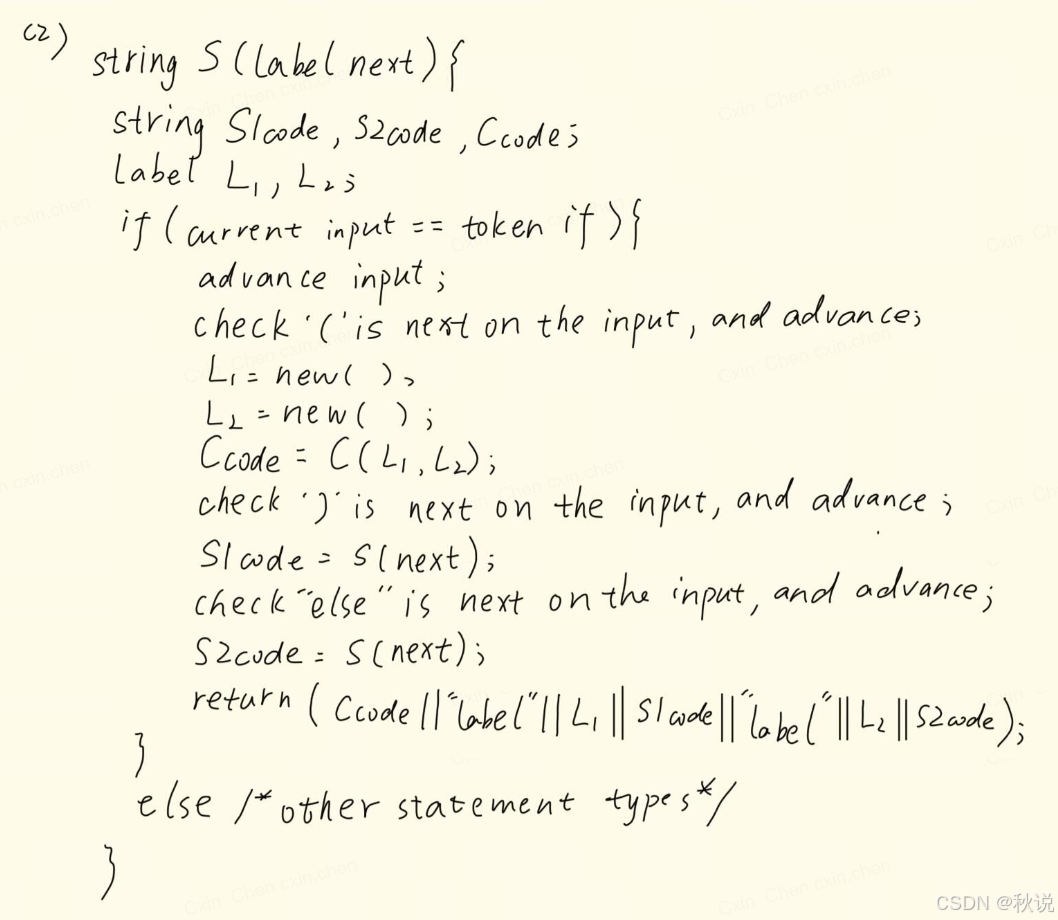 (2)
string S(label next){
string S1code, S2code, Ccode;
label L₁, L₂;
if(current input == token if){
advance input;
check '(' is next on the input, and advance;
L₁ = new( ),
L₂ = new( );
Ccode = C(L₁, L₂);
check ')' is next on the input, and advance;
S1code = S(next);
check "else" is next on the input, and advance;
S2code = S(next);
return (Ccode||"label"||L₁||S1code||"label"||L₂||S2code);
}
else /*other statement types*/
}
CSDN @秋说